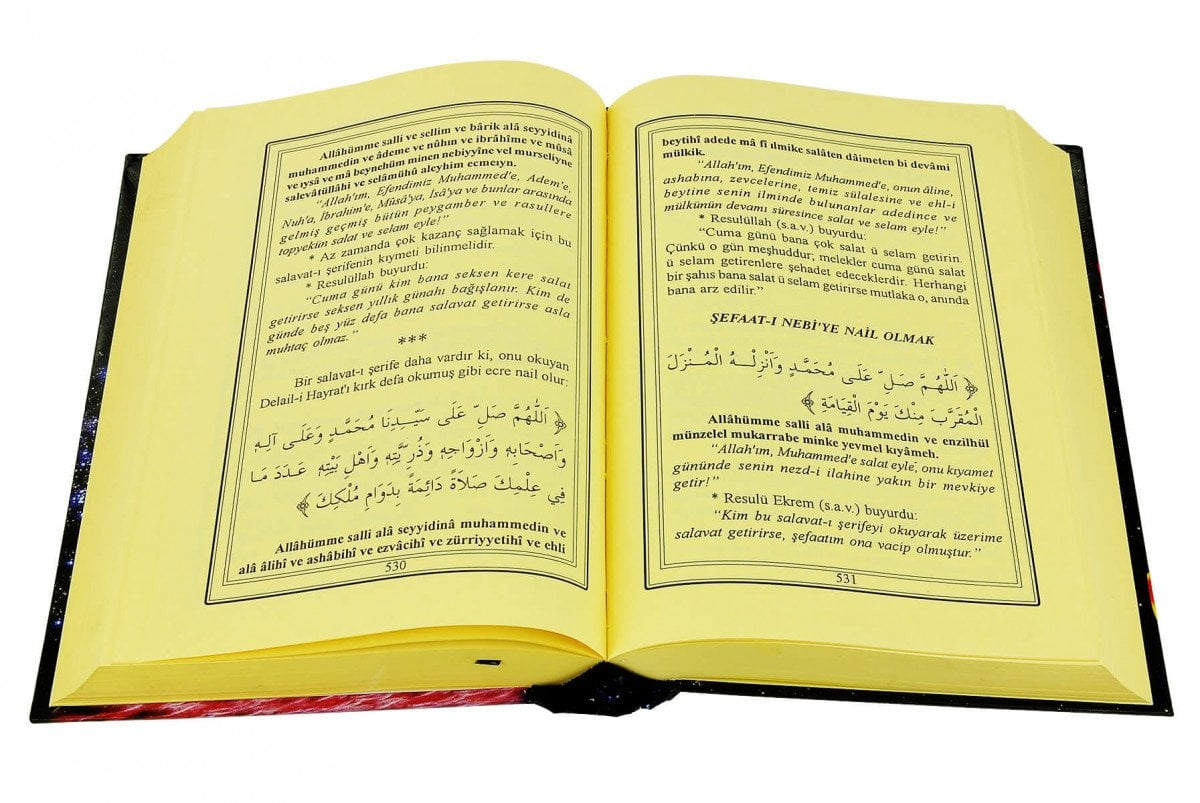 Allâhümme salli ve sellim ve bârik alâ seyyidinâ
muhammedin ve âdeme ve nûhın ve ibrâhîme ve mûsâ
ve ıysâ ve mâ beynehüm minen nebiyyîne vel murseliyne
salevâtüllâhi ve selâmühû aleyhim ecmeıyn.
"Allah'ım, Efendimiz Muhammed'e, Adem'e,
Nuh'a, İbrahim'e, Mûsâ'ya, İsâ'ya ve bunlar arasında
gelmiş geçmiş bütün peygamber ve rasullere
topyekün salat ve selam eyle!"
* Az zamanda çok kazanç sağlamak için bu
salavat-ı şerifenin kıymeti bilinmelidir.
* Resulüllah buyurdu:
"Cuma günü kim bana seksen kere salat
getirirse seksen yıllık günahı bağışlanır. Kim de
günde beş yüz defa bana salavat getirirse asla
muhtaç olmaz."
***
Bir salavat-ı şerife daha vardır ki, onu okuyan
Delail-i Hayrat'ı kırk defa okumuş gibi ecre nail olur:
﴿ اَللّٰهُمَّ صَلِّ عَلَى سَيِّدِنَا مُحَمَّدٍ وَعَلَى آلِهِ
وَاَصْحَابِهِ وَاَزْوَاجِهِ وَذُرِّيَّتِهِ وَاَهْلِ بَيْتِهِ عَدَدَ مَا
فِي عِلْمِكَ صَلَاةً دَائِمَةً بِدَوَامِ مُلْكِكَ ﴾
Allâhümme salli alâ seyyidinâ muhammedin ve
alâ âlihî ve ashâbihî ve ezvâcihî ve zürriyyetihî ve ehli
530
beytihî adede mâ fî ilmike salâten dâimeten bi devâmi
mülkik.
"Allah'ım, Efendimiz Muhammed'e, onun âline,
ashabına, zevcelerine, temiz sülalesine ve ehl-i
beytine senin ilminde bulunanlar adedince ve
mülkünün devamı süresince salat ve selam eyle!"
* Resulüllah (s.a.v.) buyurdu:
"Cuma günü bana çok salat ü selam getirin.
Çünkü o gün meşhuddur; melekler cuma günü salat
ü selam getirenlere şehadet edeceklerdir. Herhangi
bir şahıs bana salat ü selam getirirse mutlaka o, anında
bana arz edilir."
ŞEFAAT-I NEBİ'YE NAİL OLMAK
﴿ اَللّٰهُمَّ صَلِّ عَلَى مُحَمَّدٍ وَاَنْزِلْهُ الْمُنْزَلَ
الْمُقَرَّبَ مِنْكَ يَوْمَ الْقِيَامَةِ ﴾
Allâhümme salli alâ muhammedin ve enzilhül
münzelel mukarrabe minke yevmel kıyâmeh.
"Allah'ım, Muhammed'e salat eyle, onu kıyamet
gününde senin nezd-i ilahine yakın bir mevkiye
getir!"
* Resulü Ekrem (s.a.v.) buyurdu:
"Kim bu salavat-ı şerifeyi okuyarak üzerime
salavat getirirse, şefaatım ona vacip olmuştur."
531